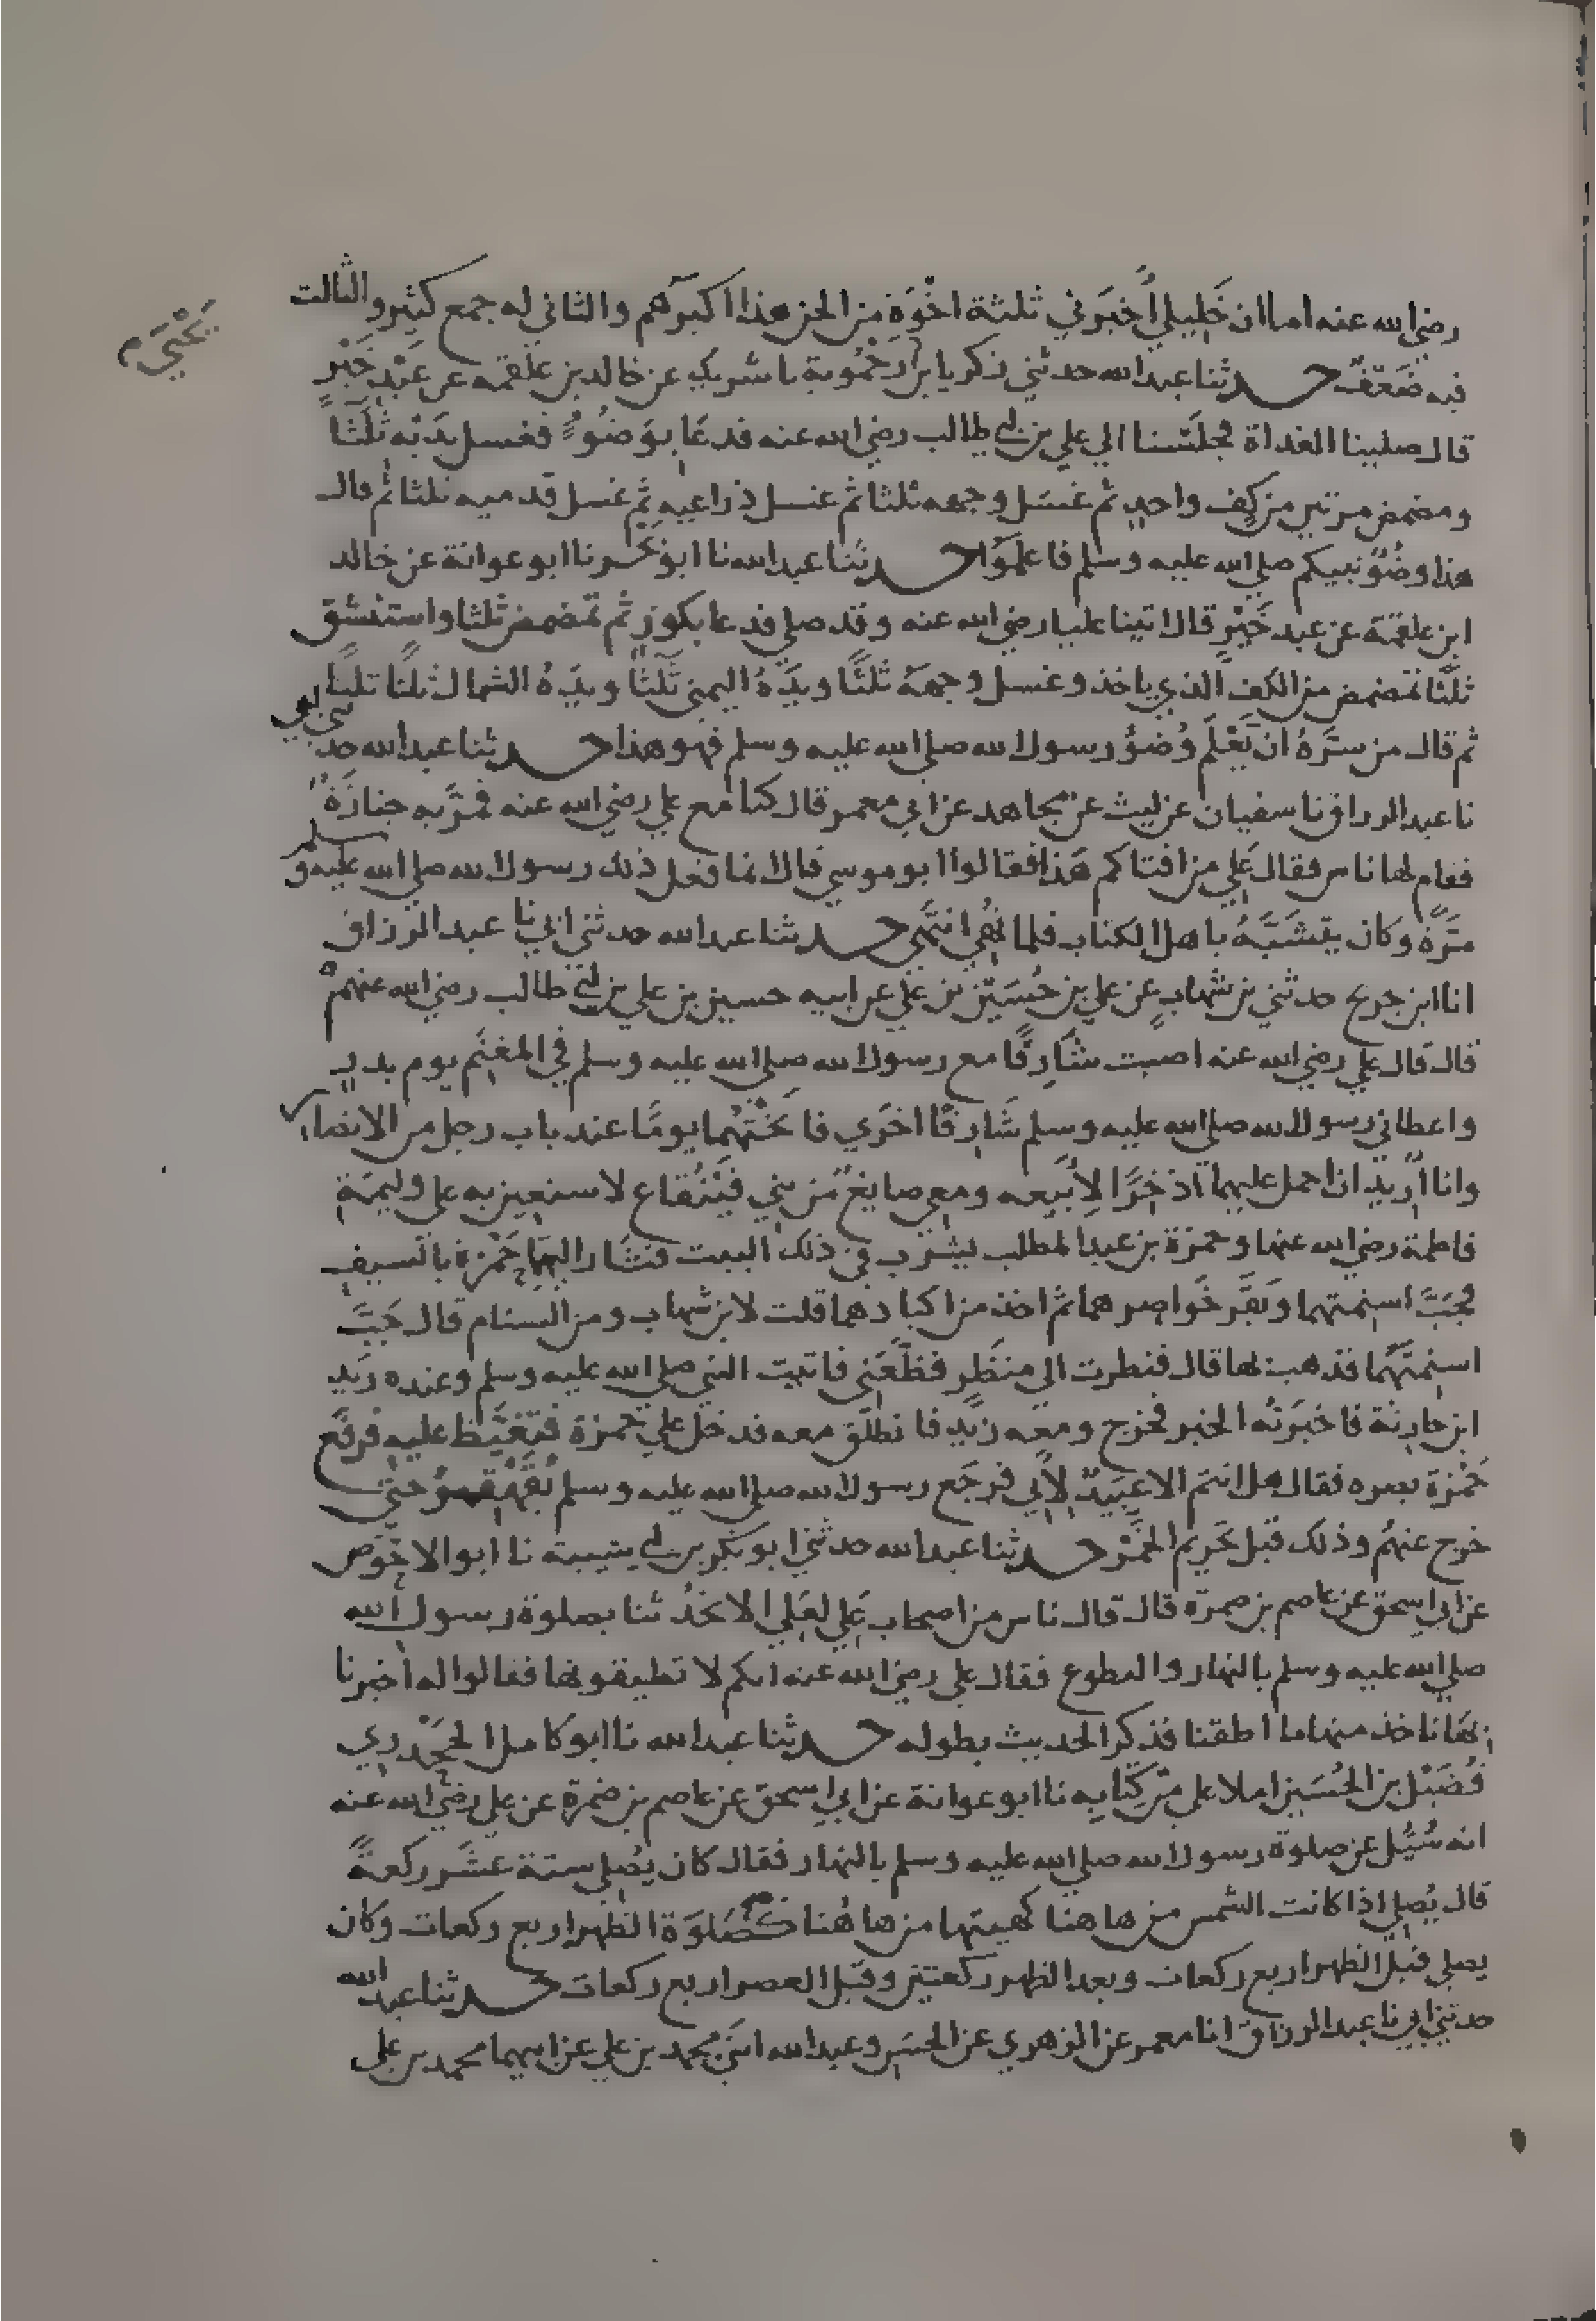 رضي الله عنه اما ان خليلي اخبرني ثلثة اخوة من الجن هذا اكبرهم والثاني له جمع كثير والثالث
فيه ضعف حدثنا عبدالله حدثني زكريا بن زحمويه نا شريك عن خالد بن علقمه عن عبد خير
قال صلينا الغداة فجلسنا الي علي بن ابي طالب رضي الله عنه فدعا بوضوء فغسل يديه ثلثا
ومضمض مرتين من كف واحد ثم غسل وجهه ثلثا ثم غسل ذراعيه ثم غسل قدميه ثلثا ثم قال
هذا وضوء نبيكم صلي الله عليه وسلم فاعلموا حدثنا عبدالله نا ابو بحر نا ابو عوانة عن خالد
ابن علقمة عن عبد خير قال اتينا عليا رضي الله عنه وقد صلي فدعا بكوز ثم تمضمض ثلثا واستنشق
ثلثا تمضمض من الكف الذي ياخذ وغسل وجهه ثلثا ويده اليمني ثلثا ويده الشمال ثلثا ثلثا
ثم قال من سره ان يعلم وضؤ رسول الله صلي الله عليه وسلم فهو هذا حدثنا عبدالله حدثني ابي
نا عبد الرزاق نا سفيان عن ليث عن مجاهد عن ابي معمر قال كنا مع علي رضي الله عنه فمر به جنازة
فقام لها ناس فقال علي من افتاكم هذا فقالوا ابو موسي قال انما فعل ذلك رسول الله صلي الله عليه وسلم
مرة وكان يتشبه باهل الكتاب فلما نهي انتهي حدثنا عبدالله حدثني ابي نا عبد الرزاق
انا ابن جريج حدثني بن شهاب عن علي بن حسين بن علي عن ابيه حسين بن علي بن ابي طالب رضي الله عنهم
قال قال علي رضي الله عنه اصبت شارفا مع رسول الله صلي الله عليه وسلم في المغنم يوم بدر
واعطاني رسول الله صلي الله عليه وسلم شارفا اخري فانختهما يوما عند باب رجل من الانصار
وانا اريد ان احمل عليهما اذخرا لابيعه ومعي صايغ من بني قينقاع لاستعين به علي وليمة
فاطمة رضي الله عنها وحمزة بن عبد المطلب يشرب في ذلك البيت فثار اليهما حمزة بالسيف
فجب اسنمتهما وبقر خواصرهما ثم اخذ من اكبادهما قلت لابن شهاب ومن السنام قال جب
اسنمتهما فذهب بها قال فنظرت الي منظر فظعني فاتيت النبي صلي الله عليه وسلم وعنده زيد
ابن حارثة فاخبرته الخبر فخرج ومعه زيد فانطلق معه فدخل علي حمزة فتغيظ عليه فرفع
حمزة بصره فقال هل انتم الا عبيد لابي فرجع رسول الله صلي الله عليه وسلم يقهقهر حتي
خرج عنهم وذلك قبل تحريم الخمر حدثنا عبدالله حدثني ابو بكر بن ابي شيبة نا ابو الاحوص
عن ابي اسحق عن عاصم بن ضمرة قال قال ناس من اصحاب علي لعلي الا تحدثنا بصلوة رسول الله
صلي الله عليه وسلم بالنهار والتطوع فقال علي رضي الله عنه انكم لا تطيقونها فقالوا له اخبرنا
بها ناخذ منها ما اطقنا فذكر الحديث بطوله حدثنا عبدالله نا ابو كامل الجحدري
فضيل بن الحسين املا علي من كتابه نا ابو عوانة عن ابي اسحق عن عاصم بن ضمرة عن علي رضي الله عنه
انه سئل عن صلوة رسول الله صلي الله عليه وسلم بالنهار فقال كان يصلي ستة عشر ركعة
قال يصلي اذا كانت الشمس من هاهنا كهيتها من هاهنا كصلوة الظهر اربع ركعات وكان
يصلي قبل الظهر اربع ركعات وبعد الظهر ركعتين وقبل العصر اربع ركعات حدثنا عبدالله
حدثني ابي نا عبد الرزاق انا معمر عن الزهري عن الحسن وعبدالله ابني محمد بن علي عن ابيهما محمد بن علي